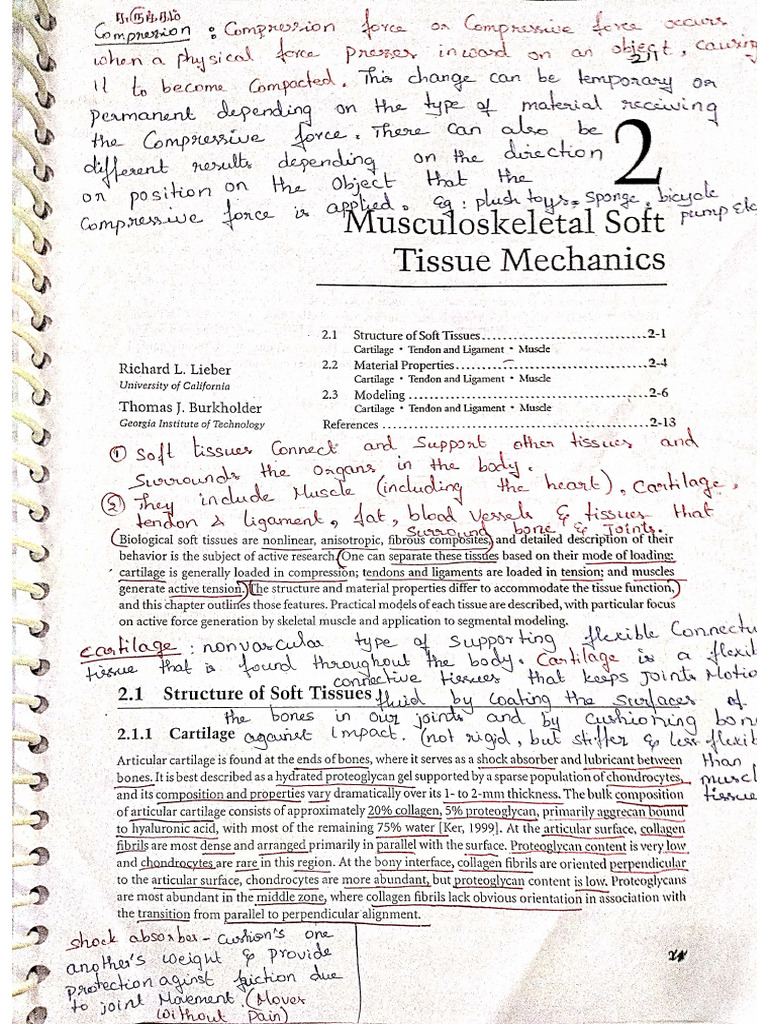 Compression : Compression force or Compressive force occurs
when a physical force presses inward on an object, causing
it to become compacted. This change can be temporary or
permanent depending on the type of material receiving
the Compressive force. There can also be
different results depending on the direction
or position on the object that the
Compressive force is applied. Eg: plush toys, sponge, bicycle
pump etc
2
Musculoskeletal Soft
Tissue Mechanics
2.1 Structure of Soft Tissues...............................................2-1
Cartilage • Tendon and Ligament • Muscle
2.2 Material Properties.....................................................2-4
Cartilage • Tendon and Ligament • Muscle
2.3 Modeling ....................................................................2-6
Cartilage • Tendon and Ligament • Muscle
References ............................................................................2-13
Richard L. Lieber
University of California
Thomas J. Burkholder
Georgia Institute of Technology
① Soft tissues Connect and Support other tissues and
Surrounds the Organs in the body.
② They include Muscle (including the heart), Cartilage,
tendon & ligament, fat, blood vessels & tissues that
surround bone & Joints.
Biological soft tissues are nonlinear, anisotropic, fibrous composites, and detailed description of their
behavior is the subject of active research. One can separate these tissues based on their mode of loading:
cartilage is generally loaded in compression; tendons and ligaments are loaded in tension; and muscles
generate active tension. The structure and material properties differ to accommodate the tissue function,
and this chapter outlines those features. Practical models of each tissue are described, with particular focus
on active force generation by skeletal muscle and application to segmental modeling.
Cartilage : nonvascular type of supporting flexible Connectu
tissue that is found throughout the body. Cartilage is a flexib
connective tissues that keeps Joints Motio
2.1 Structure of Soft Tissues
fluid by coating the surfaces of
the bones in our joints and by cushioning bon
2.1.1 Cartilage
against impact. (not rigid, but stiffer & less flexib
than
muscl
tissue
Articular cartilage is found at the ends of bones, where it serves as a shock absorber and lubricant between
bones. It is best described as a hydrated proteoglycan gel supported by a sparse population of chondrocytes,
and its composition and properties vary dramatically over its 1- to 2-mm thickness. The bulk composition
of articular cartilage consists of approximately 20% collagen, 5% proteoglycan, primarily aggrecan bound
to hyaluronic acid, with most of the remaining 75% water [Ker, 1999]. At the articular surface, collagen
fibrils are most dense and arranged primarily in parallel with the surface. Proteoglycan content is very low
and chondrocytes are rare in this region. At the bony interface, collagen fibrils are oriented perpendicular
to the articular surface, chondrocytes are more abundant, but proteoglycan content is low. Proteoglycans
are most abundant in the middle zone, where collagen fibrils lack obvious orientation in association with
the transition from parallel to perpendicular alignment.
shock absorber - cushion's one
another's weight & provide
protection aginst friction due
to joint Movement. (Moves
without pain)